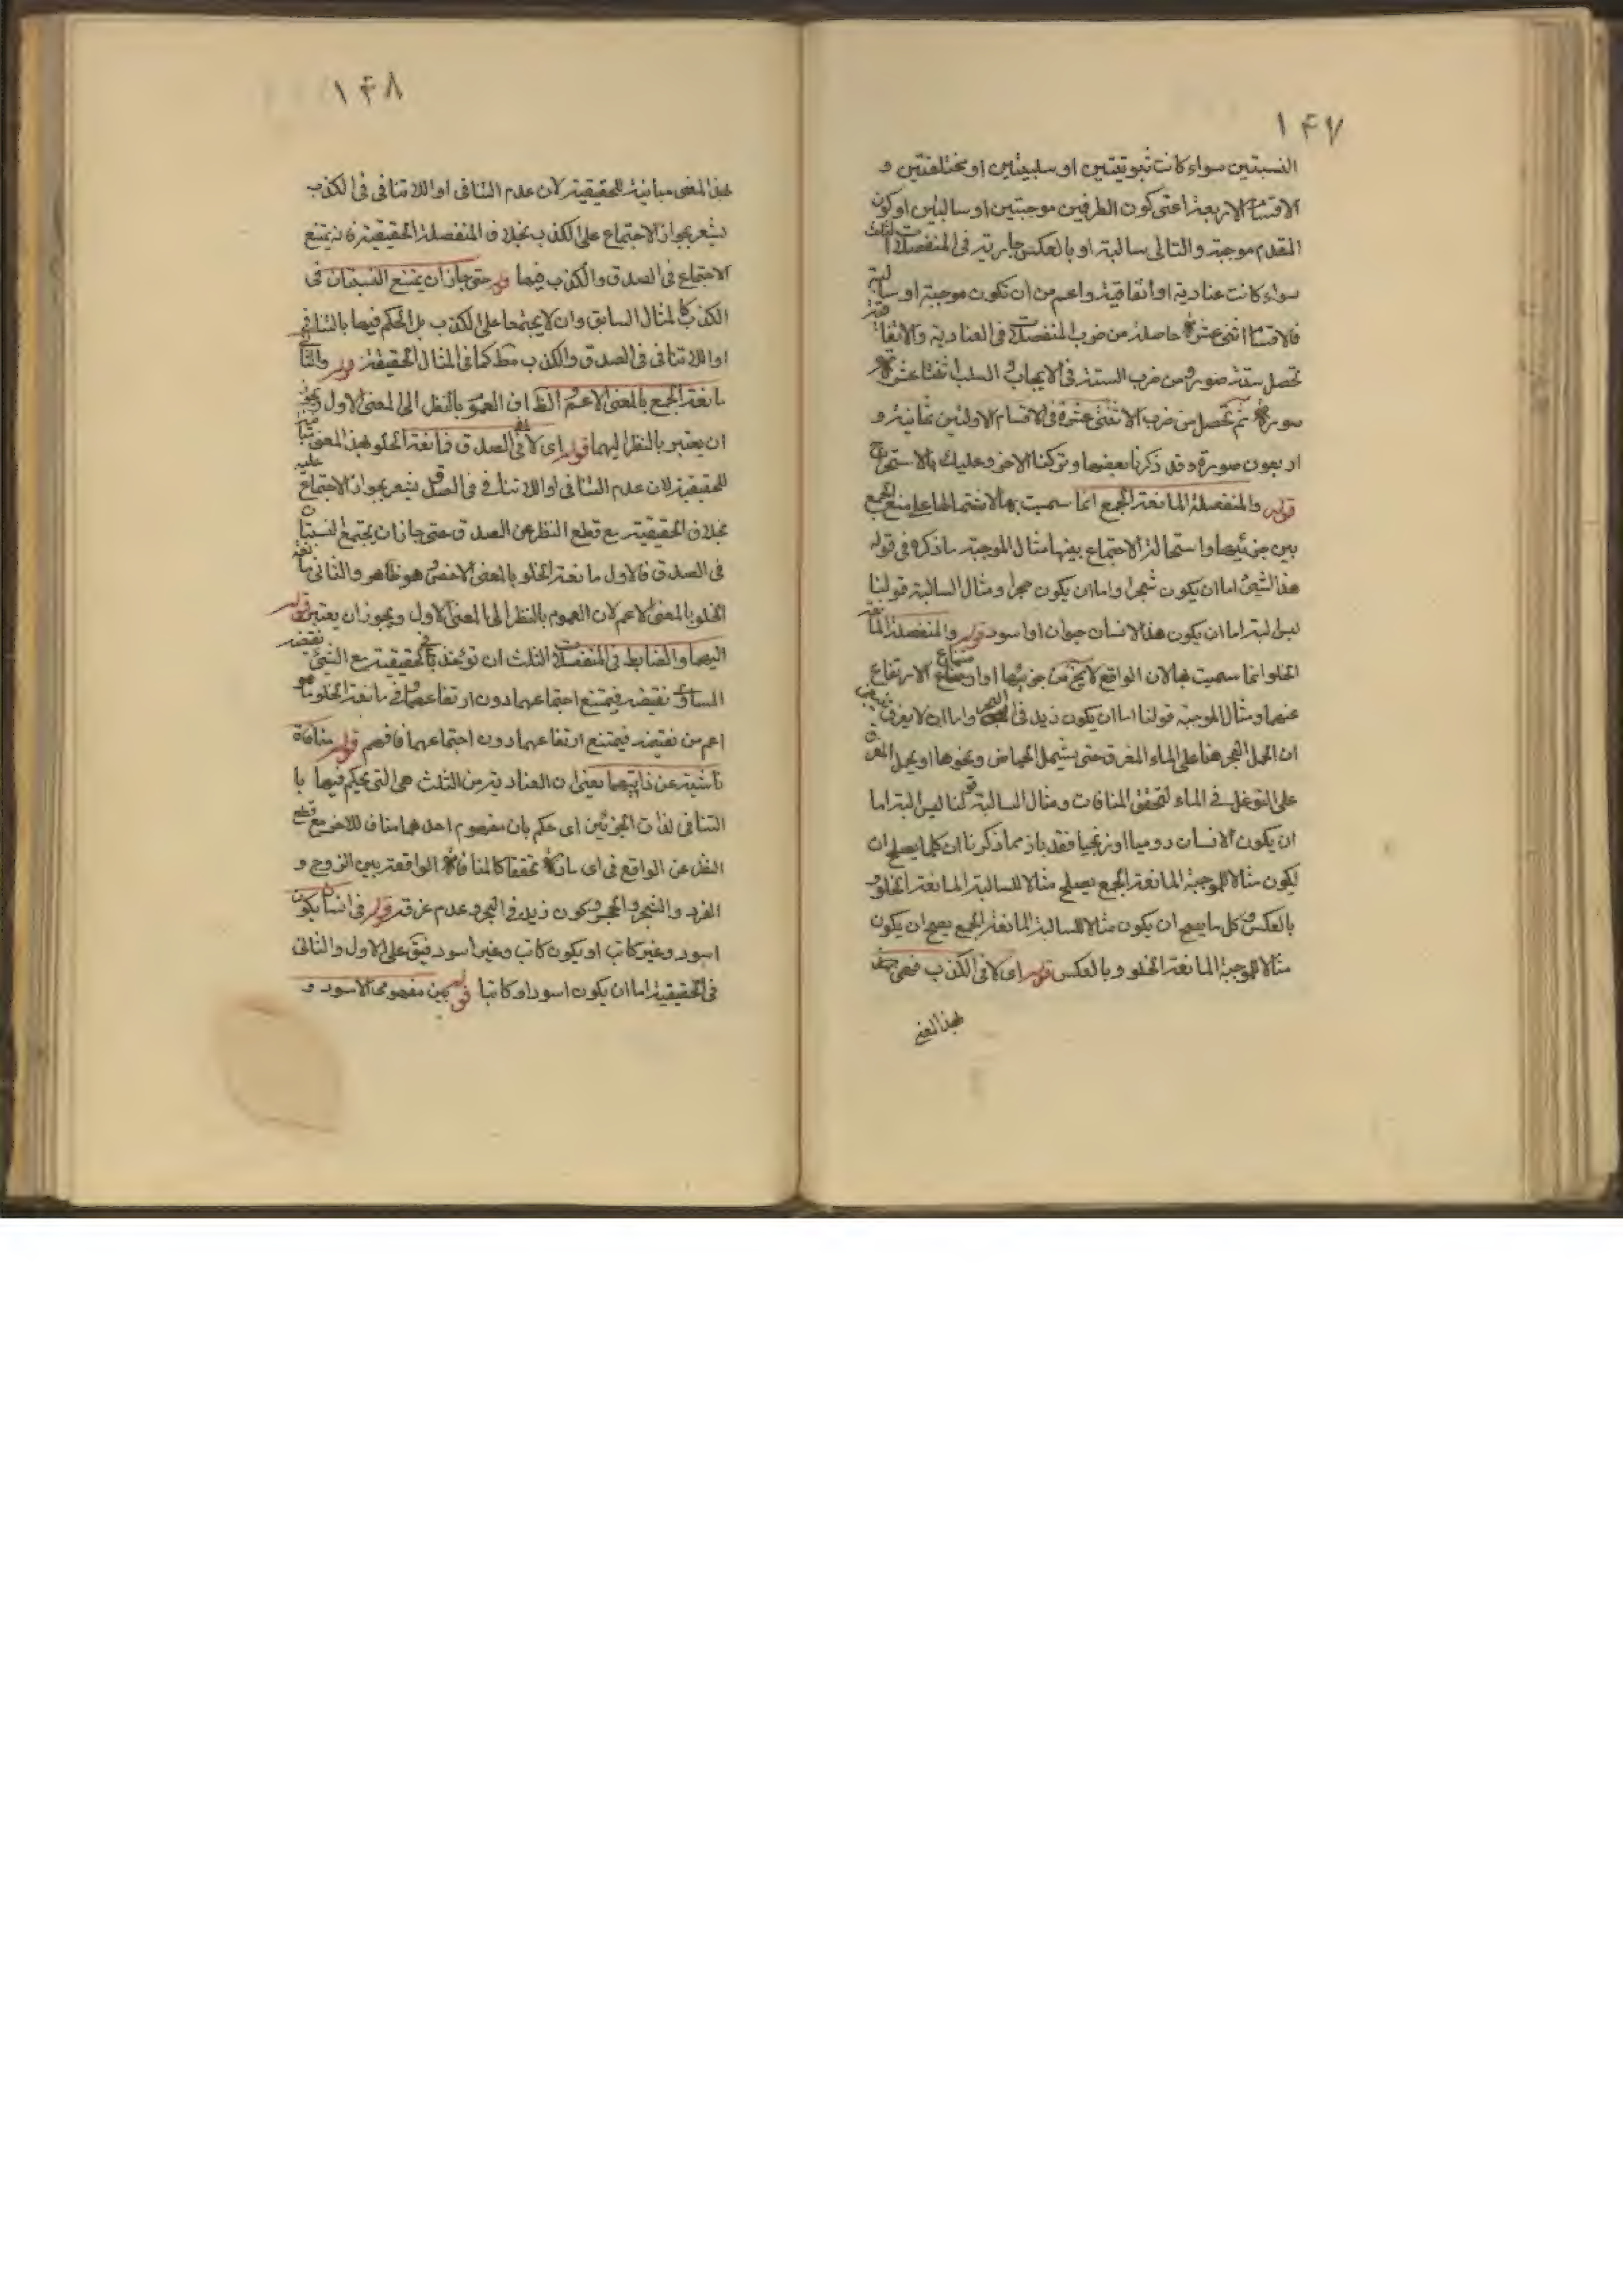 ١۴٧
النسبتين سواء كانت ثبوتيتين او سلبيتين او مختلفتين و
الاقسام الاربعة اعنى كون الطرفين موجبتين او سالبتين او كون
المقدم موجبة والتالى سالبة او بالعكس جارية فى المنفصلات الثلث
سواء كانت عنادية او اتفاقية واعم من ان تكون موجبة او سالبة
فالاقسام اثنى عشرة حاصلة من ضرب المنفصلات فى العنادية والاتفاقية
تحصل ستة صورة ومن ضرب الستة فى الايجاب والسلب اثنتا عشرة
صورة ثم تحصل من ضرب الاثنتى عشرة فى الاقسام الاولين ثمانية و
اربعون صورة وقد ذكرنا بعضها وتركنا الاخر وعليك بالاستخراج
قوله والمنفصلة المانعة الجمع انما سميت بها لاشتمالها على منع الجمع
بين جزئيها واستحالة الاجتماع بينهما مثال الموجبة ما ذكره فى قوله
هذا الشئ اما ان يكون شجرا واما ان يكون حجرا ومثال السالبة قولنا
ليس البتة اما ان يكون هذا الانسان حيوان او اسود قوله والمنفصلة المانعة
الخلو انما سميت بها لان الواقع لا يخ من جزئيها او امتناع الارتفاع
عنهما ومثال الموجبة قولنا اما ان يكون زيد فى البحر واما ان لا يغرق
ان الحمل البحر هنا على الماء المغرق حتى يشمل الحياض ونحوها او يحمل الغرق
على التوغل فى الماء لتحقق المنافات ومثال السالبة قولنا ليس البتة اما
ان يكون الانسان روميا او زنجيا فقد باز مما ذكرنا ان كلما يصلح ان
يكون مثالا للموجبة المانعة الجمع يصلح مثالا للسالبة المانعة الخلو و
بالعكس وكل ما يصح ان يكون مثالا للسالبة المانعة الجمع يصح ان يكون
مثالا للموجبة المانعة الخلو وبالعكس قوله اى لا فى الكذب فهى
بهذا المعنى
١۴٨
بهذا المعنى مباينة للحقيقية لان عدم التنافى او اللا تنافى فى الكذب
يشعر بجواز الاجتماع على الكذب بخلاف المنفصلة الحقيقية فانه يمتنع
الاجتماع فى الصدق والكذب فيها قوله حتى جاز ان يمتنع النسبتان فى
الكذب كالمثال السابق وان لا يجتمعا على الكذب بل الحكم فيها بالتنافى
او اللا تنافى فى الصدق والكذب مثل كما فى المثال الحقيقية قوله والثانى
مانعة الجمع بالمعنى الاعم الظ ان العموم بالنظر الى المعنى الاول ويجوز
ان يعتبر بالنظر اليهما قوله اى لا فى الصدق فمانعة الخلو بهذا المعنى مباينة
للحقيقية لان عدم التنافى او اللا تنافى فى الصدق يشعر بجواز الاجتماع عليه
بخلاف الحقيقية مع قطع النظر عن الصدق حتى جاز ان يجتمع النسبتان
فى الصدق فالاول مانعة الخلو بالمعنى الاخص وهو ظاهر والثانى مانعة
الخلو بالمعنى الاعم لان العموم بالنظر الى المعنى الاول ويجوز ان يعتبر قوله
اليهما والضابط فى المنفصلات الثلث ان تؤخذ فى الحقيقية مع الشئ نقيضه
المساوى نقيضه فيمتنع اجتماعهما دون ارتفاعهما وفى مانعة الخلو ما هو
اعم من نقيضه فيمتنع ارتفاعهما دون اجتماعهما فافهم قوله منافاة
ناشية عن ذاتيهما يعنى ان العنادية من الثلث هى التى يحكم فيها با
التنافى لذات الجزئين اى حكم بان مفهوم احدهما مناف للاخر مع قطع
النظر عن الواقع فى اى مادة تحققا كالمنافاة الواقعة بين الزوج و
الفرد والشجر والحجر وكون زيد فى البحر وعدم غرقه قوله فى انسان يكون
اسود وغير كاتب او يكون كاتب وغير اسود فيق على الاول والثانى
فى الحقيقية اما ان يكون اسود او كاتبا قوله بين مفهومى الاسود و